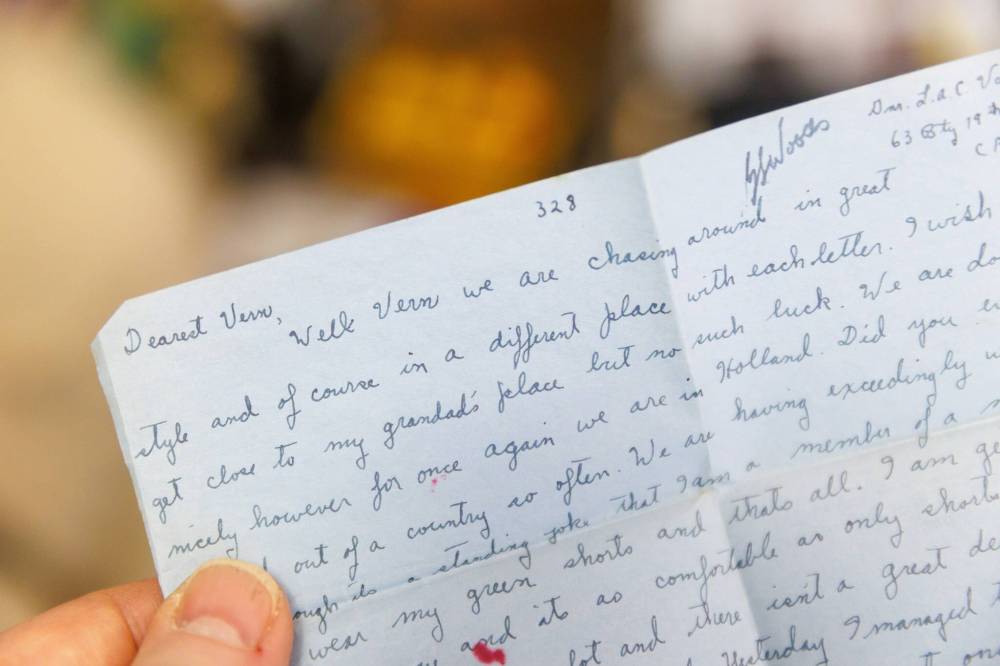 328
GSWoods
63 Bty 19th
Dearest Vern,
Well Vern we are chasing around in great
style and of course in a different place with each letter. I wish
get close to my grandad's place but no such luck. We are
nicely however for once again we are in Holland. Did you
out of a country so often. We are having exceedingly
its a standing joke that I am a member of a
wear my green shorts and thats all. I am
and its as comfortable as only
and there isn't a great
Yesterday I managed